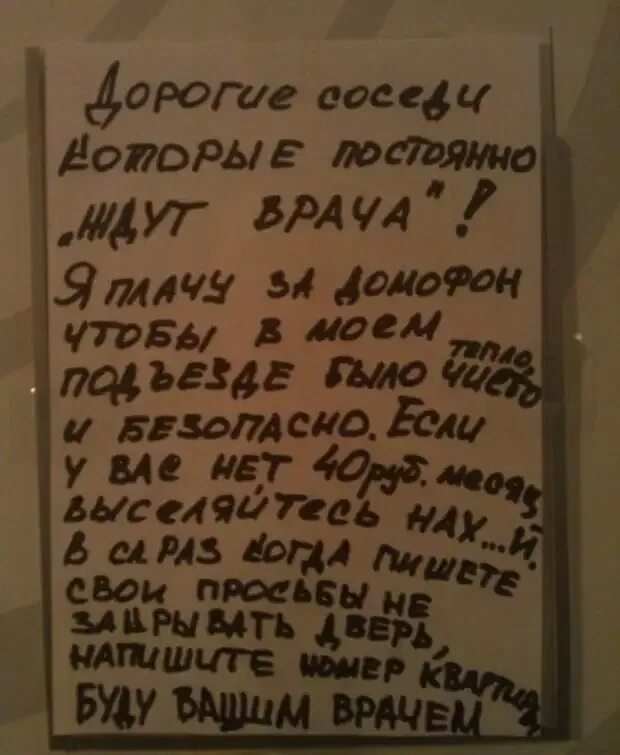 Дорогие соседи
КОТОРЫЕ постоянно
„ЖДУТ ВРАЧА"!
Я ПЛАЧУ ЗА ДОМОФОН
ЧТОБЫ В МОЕМ
ПОДЪЕЗДЕ БЫЛО тепло, ЧИСТО
И БЕЗОПАСНО. ЕСЛИ
У ВАС НЕТ 40 руб. месяц
ВЫСЕЛЯЙТЕСЬ НАХ...Й.
В СЛ РАЗ КОГДА ПИШЕТЕ
СВОИ ПРОСЬБЫ НЕ
ЗАКРЫВАТЬ ДВЕРЬ,
НАПИШИТЕ НОМЕР
БУДУ ВАШИМ ВРАЧЕМ